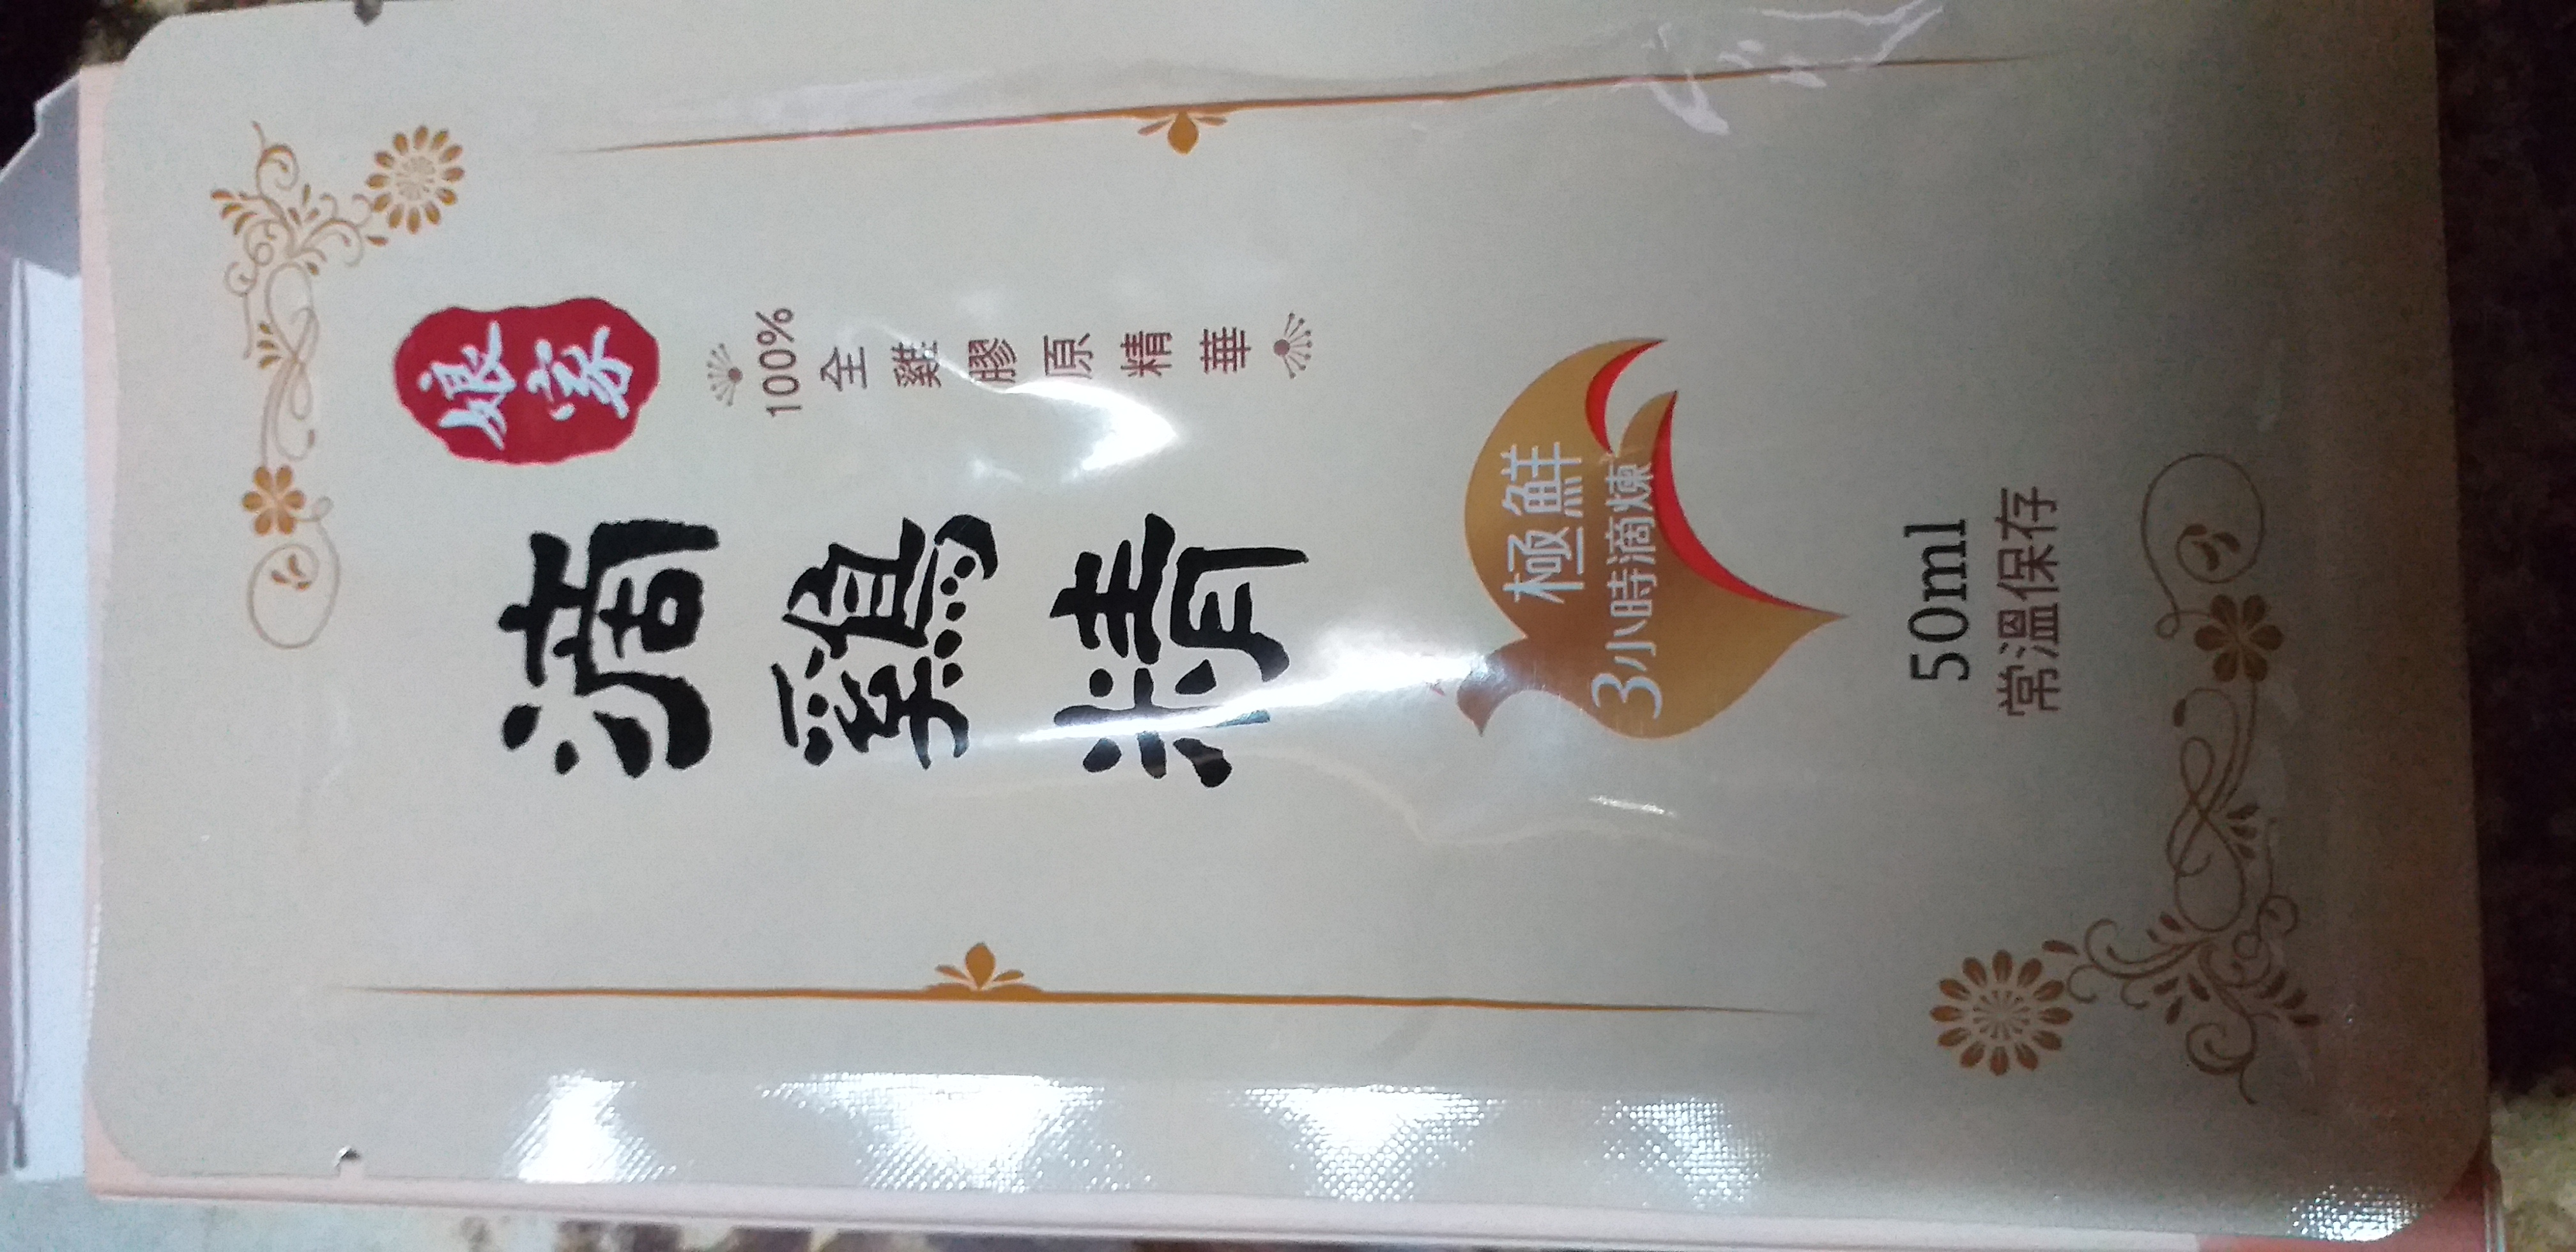 娘家
滴鷄精
100%全雞膠原精華
極鮮
3小時滴煉
50ml
常溫保存